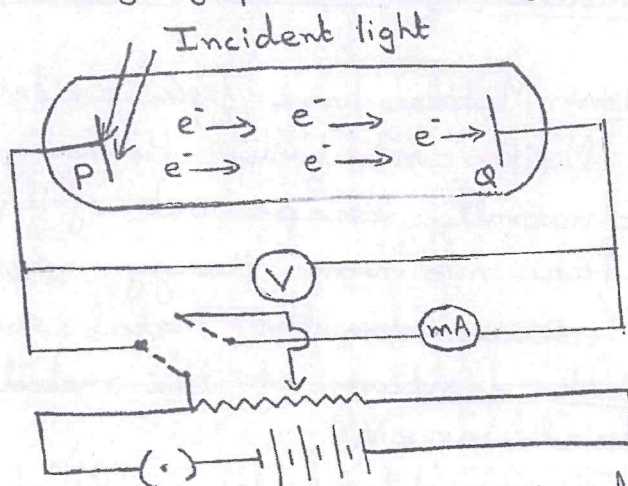 Incident light
e⁻ → e⁻ → e⁻ →
e⁻ → e⁻ →
P
Q
V
mA